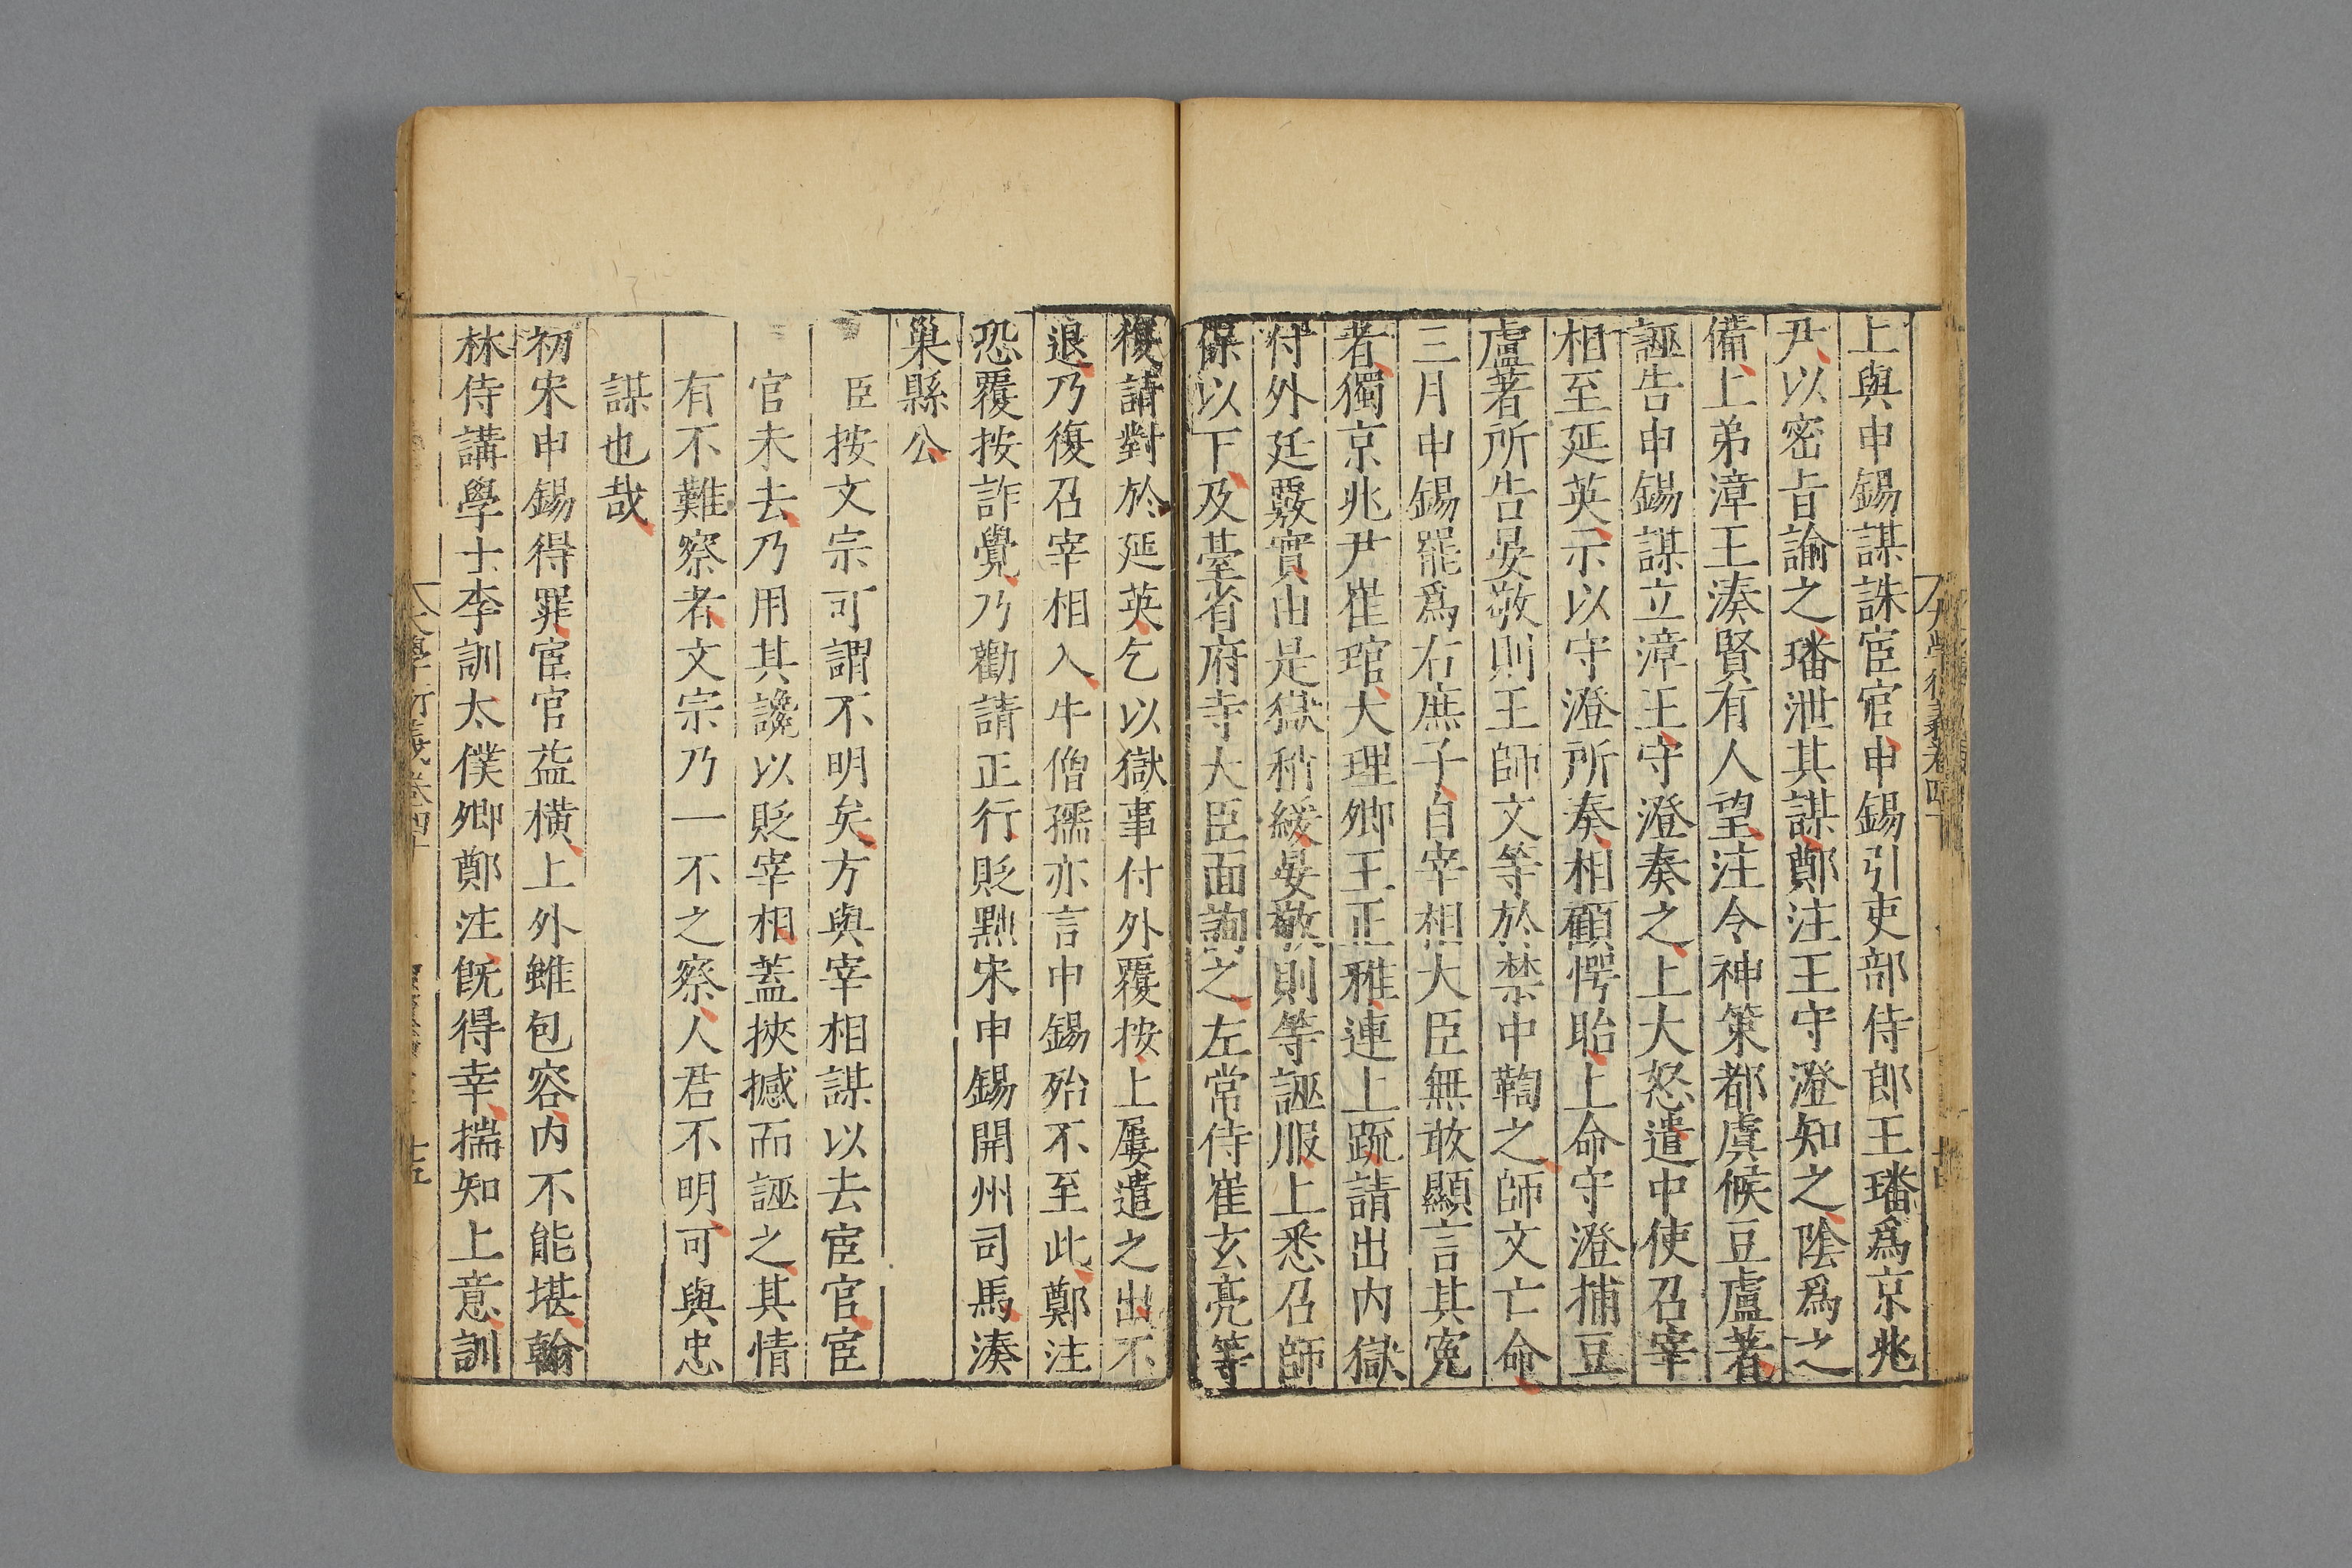 上與申錫謀誅宦官申錫引吏部侍郎王璠爲京兆
尹以密旨諭之璠泄其謀鄭注王守澄知之陰爲之
備上弟漳王湊賢有人望注令神策都虞候豆盧著
誣告申錫謀立漳王守澄奏之上大怒遣中使召宰
相至延英示以守澄所奏相顧愕眙上命守澄捕豆
盧著所告晏敬則王師文等於禁中鞫之師文亡命
三月申錫罷爲右庶子自宰相大臣無敢顯言其寃
者獨京兆尹崔琯大理卿王正雅連上疏請出内獄
付外廷覈實由是獄稍緩晏敬則等誣服上悉召師
保以下及臺省府寺大臣面詢之左常侍崔玄亮等
復請對於延英乞以獄事付外覆按上屢遣之出不
退乃復召宰相入牛僧孺亦言申錫殆不至此鄭注
恐覆按詐覺乃勸請正行貶黜宋申錫開州司馬湊
巢縣公
臣按文宗可謂不明矣方與宰相謀以去宦官宦
官未去乃用其讒以貶宰相蓋挾撼而誣之其情
有不難察者文宗乃一不之察人君不明可與忠
謀也哉
初宋申錫得罪宦官益橫上外雖包容内不能堪翰
林侍講學士李訓太僕卿鄭注旣得幸揣知上意訓
大學衍義卷四十
十五